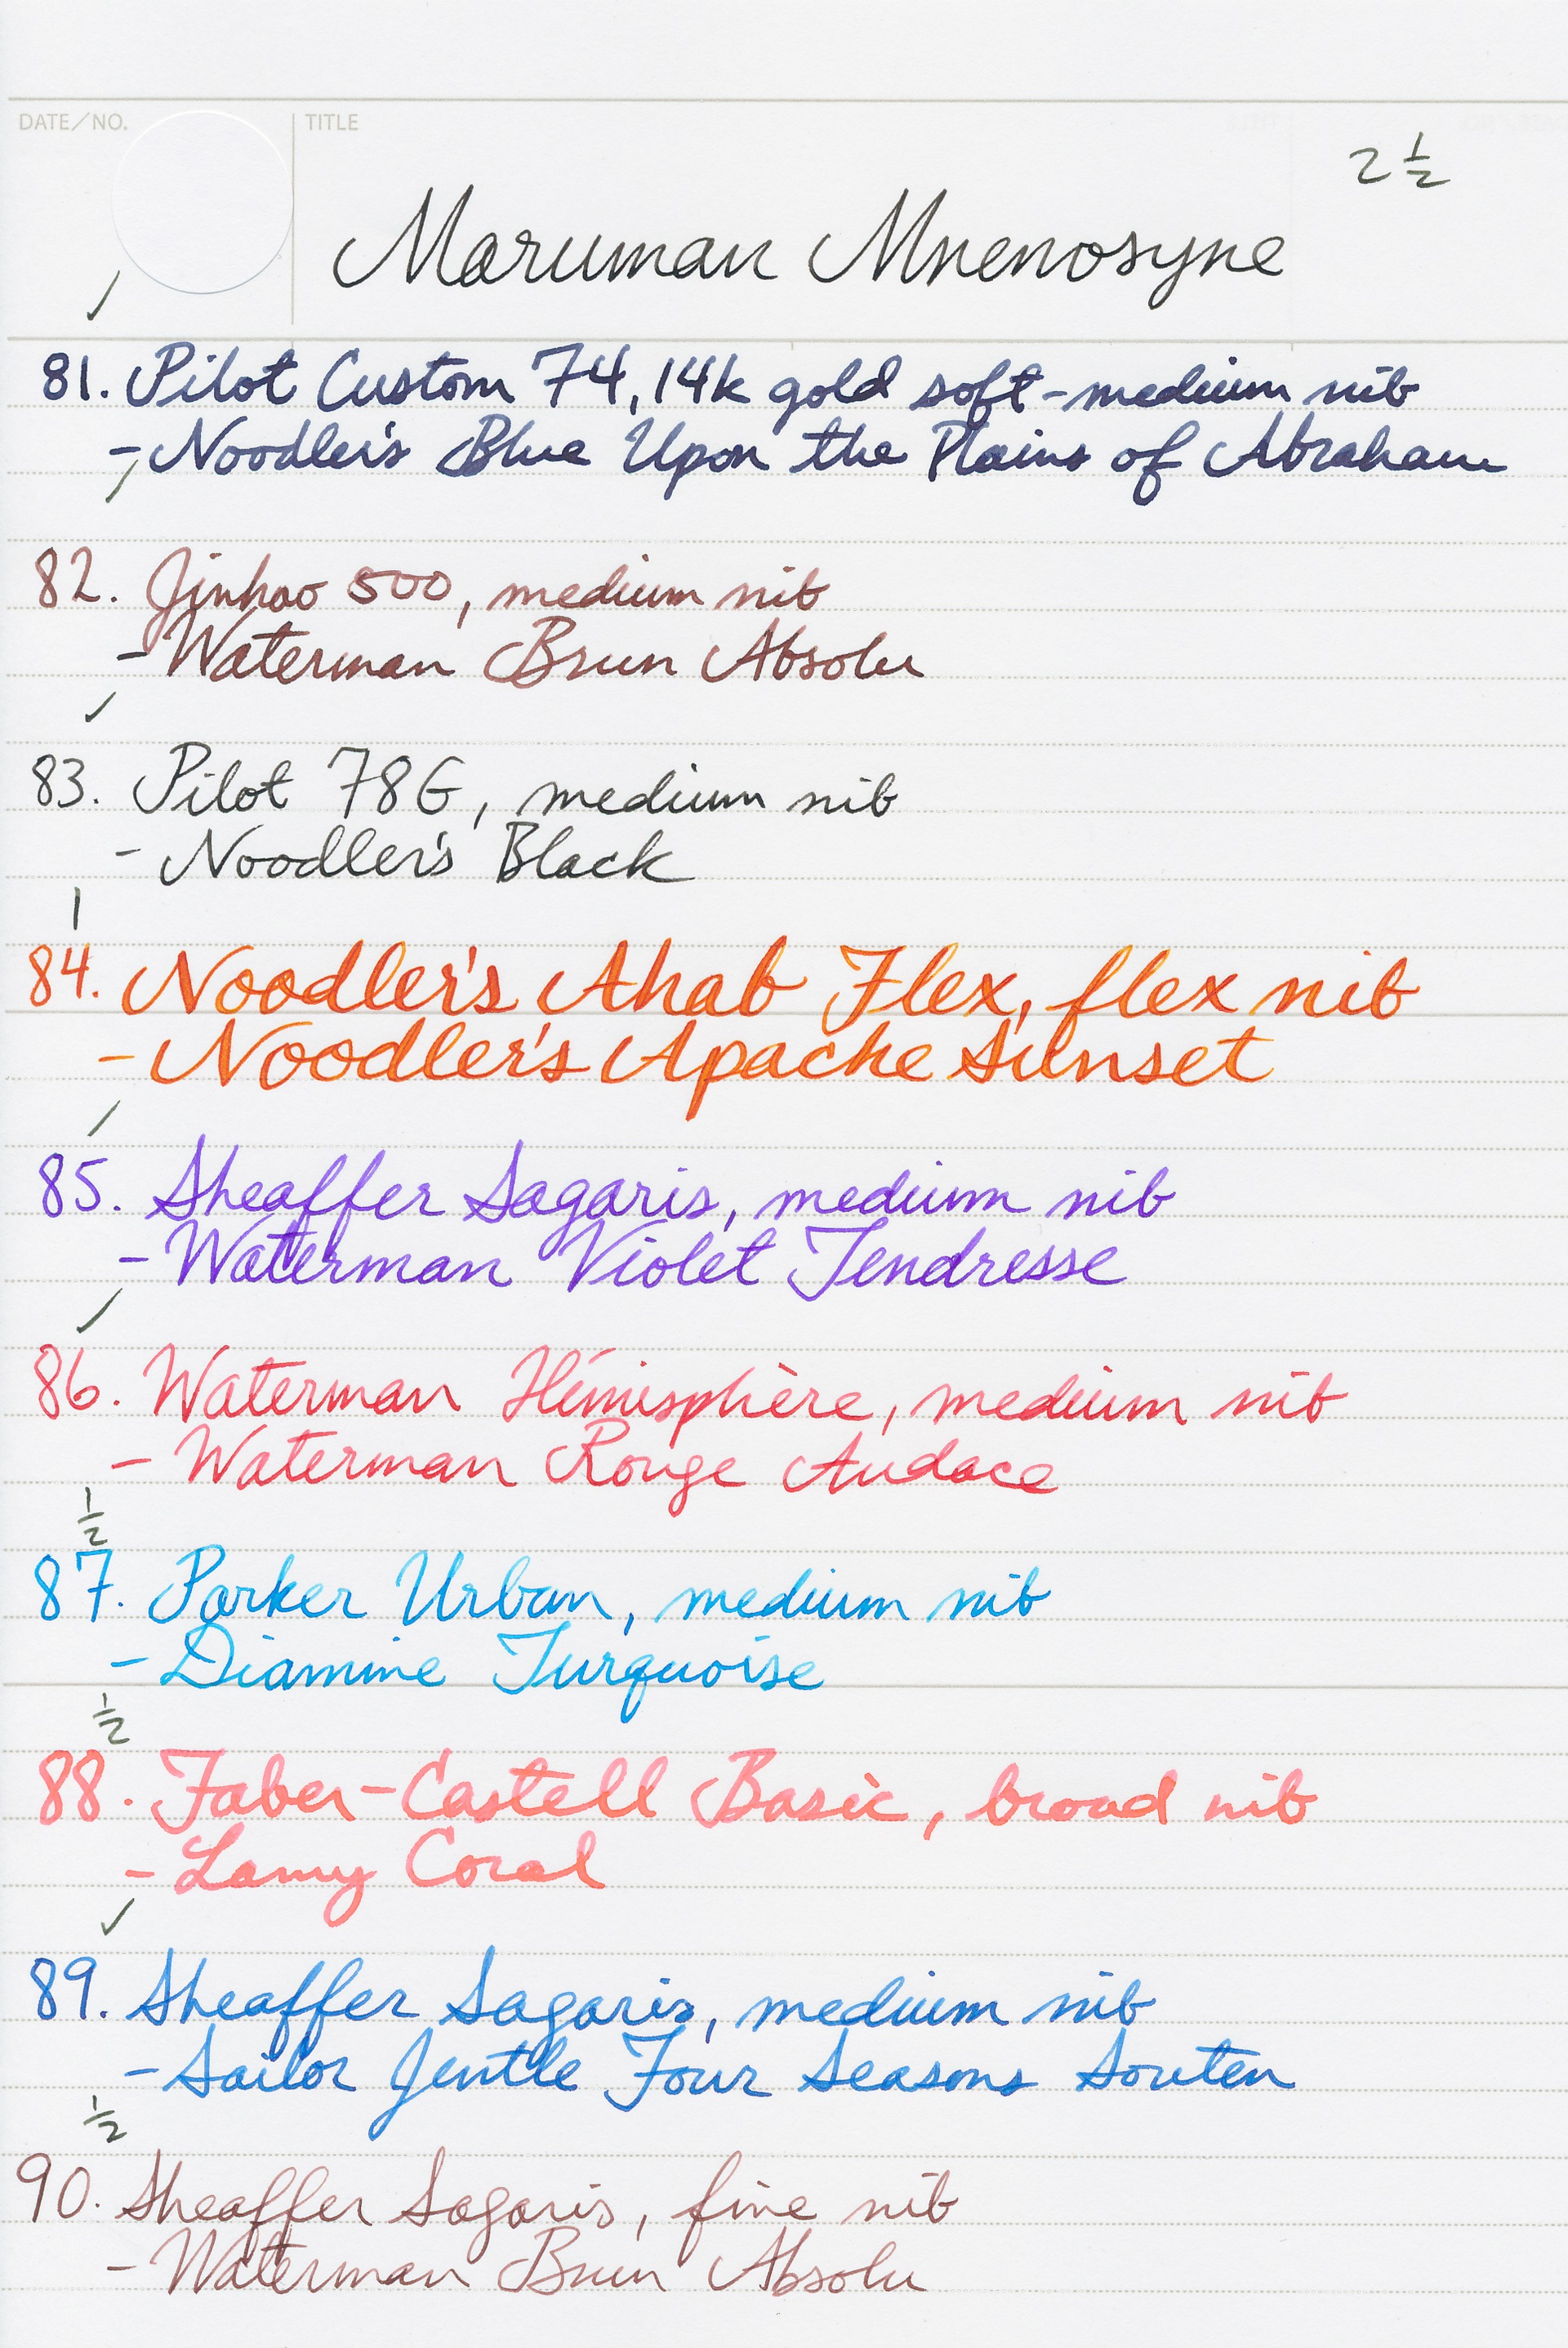 DATE/NO. TITLE
2 1/2
Maruman Mnenosyne
✓
81. Pilot Custom 74, 14k gold soft-medium nib
- Noodler's Blue Upon the Plains of Abraham
✓
82. Jinhao 500, medium nib
- Waterman Brun Absolu
✓
83. Pilot 78G, medium nib
- Noodler's Black
1
84. Noodler's Ahab Flex, flex nib
- Noodler's Apache Sunset
✓
85. Sheaffer Sagaris, medium nib
- Waterman Violet Tendresse
✓
86. Waterman Hémisphère, medium nib
- Waterman Rouge Audace
1/2
87. Parker Urban, medium nib
- Diamine Turquoise
1/2
88. Faber-Castell Basic, broad nib
- Lamy Coral
✓
89. Sheaffer Sagaris, medium nib
- Sailor Jentle Four Seasons Souten
1/2
90. Sheaffer Sagaris, fine nib
- Waterman Brun Absolu